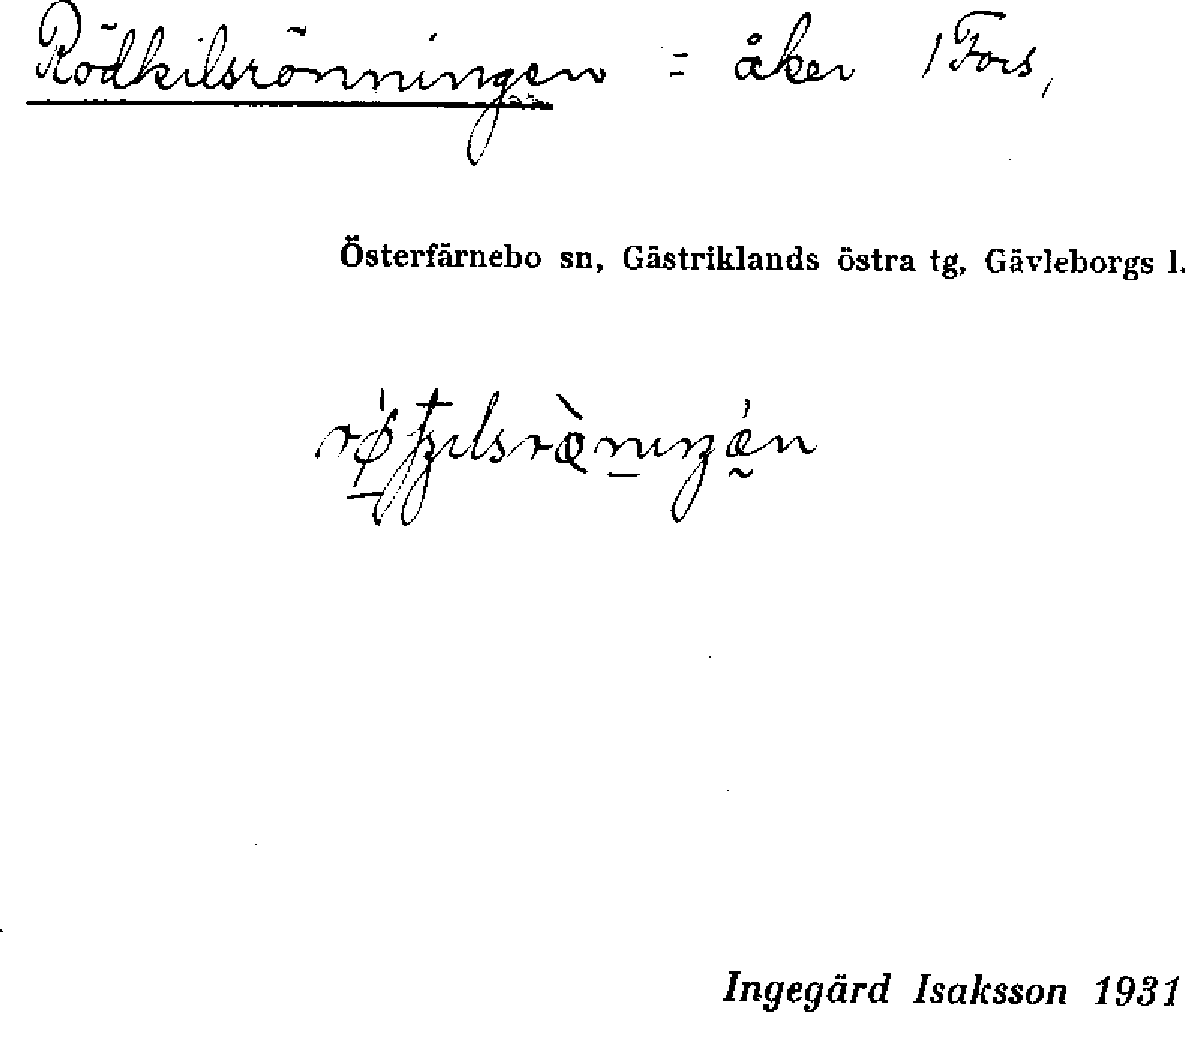 Rödkilsrönningen = åker / Fors,
Österfärnebo sn, Gästriklands östra tg, Gävleborgs l.
Ingegärd Isaksson 1931